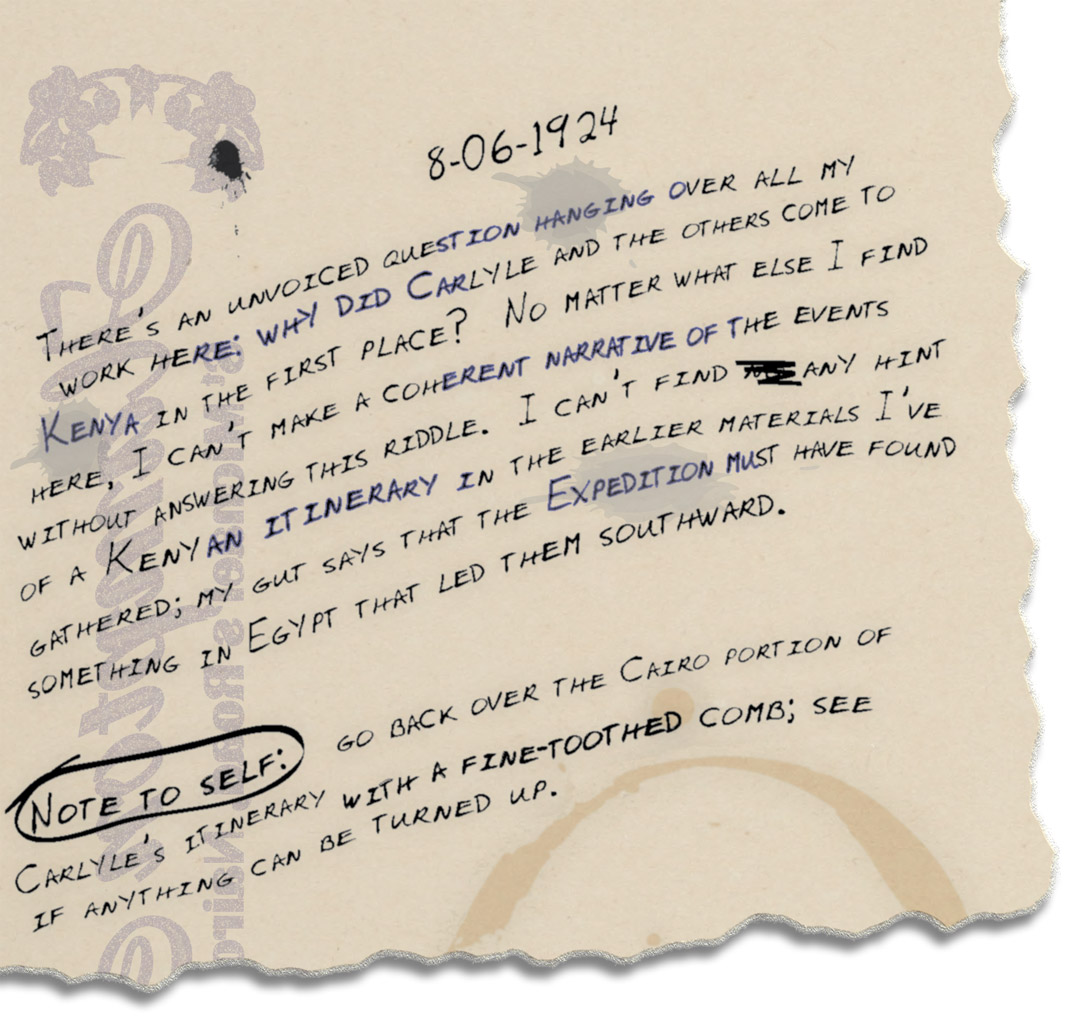 8-06-1924
THERE'S AN UNVOICED QUESTION HANGING OVER ALL MY
WORK HERE: WHY DID CARLYLE AND THE OTHERS COME TO
KENYA IN THE FIRST PLACE? NO MATTER WHAT ELSE I FIND
HERE, I CAN'T MAKE A COHERENT NARRATIVE OF THE EVENTS
WITHOUT ANSWERING THIS RIDDLE. I CAN'T FIND ANY HINT
OF A KENYAN ITINERARY IN THE EARLIER MATERIALS I'VE
GATHERED; MY GUT SAYS THAT THE EXPEDITION MUST HAVE FOUND
SOMETHING IN EGYPT THAT LED THEM SOUTHWARD.
NOTE TO SELF: GO BACK OVER THE CAIRO PORTION OF
CARLYLE'S ITINERARY WITH A FINE-TOOTHED COMB; SEE
IF ANYTHING CAN BE TURNED UP.